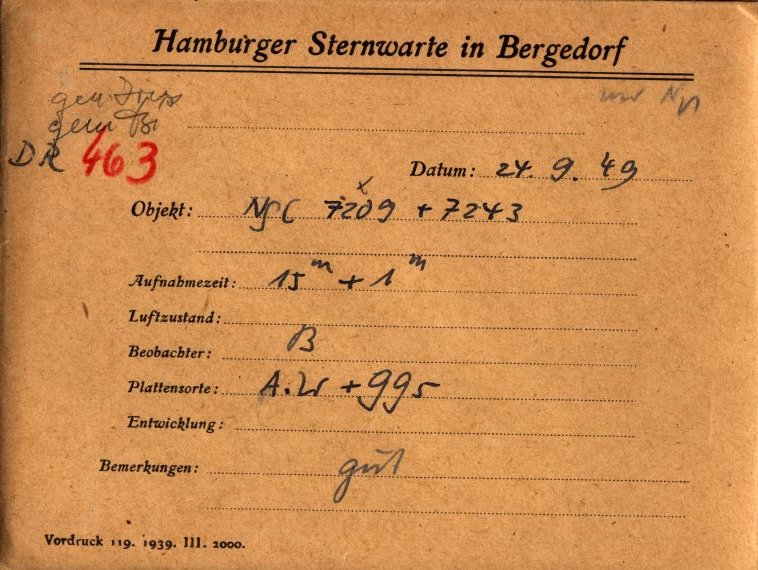 Hamburger Sternwarte in Bergedorf
gem Bi
DR 463
Datum: 24. 9. 49
Objekt: NGC 7209 + 7243
x
Aufnahmezeit: 15m + 1m
Luftzustand:
Beobachter: B
Plattensorte: + 995
Entwicklung:
Bemerkungen: gut
Vordruck 119. 1939. III. 2000.